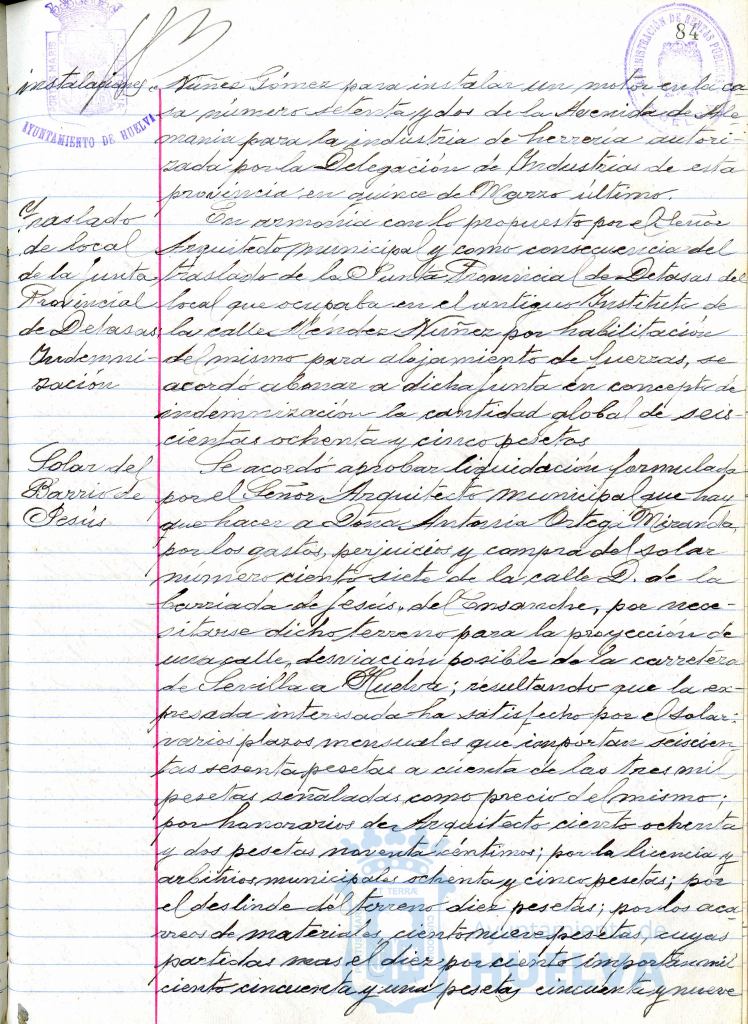 84
AYUNTAMIENTO DE HUELVA
instalaciones.
Nuñez Gómez para instalar un motor en la ca-
sa número setenta y dos de la Avenida de Ale-
mania para la industria de herrería autori-
zada por la Delegación de Industrias de esta
provincia en quince de Marzo último.
Traslado
de local
de la Junta
Provincial
de Detasas;
Indemni-
zación
En armonía con lo propuesto por el Señor
Arquitecto municipal y como consecuencia del
traslado de la Junta Provincial de Detasas del
local que ocupaba en el antiguo Instituto de
la calle Mendez Nuñez por habilitación
del mismo para alojamiento de fuerzas, se
acordó abonar a dicha Junta en concepto de
indemnización la cantidad global de seis-
cientas ochenta y cinco pesetas
Solar del
Barrio de
Jesús
Se acordó aprobar liquidación formulada
por el Señor Arquitecto municipal que hay
que hacer a Doña Antonia Ortega Miranda,
por los gastos, perjuicios y compra del solar
número ciento siete de la calle D. de la
barriada de Jesús, del Ensanche, por nece-
sitarse dicho terreno para la proyección de
una calle, desviación posible de la carretera
de Sevilla a Huelva; resultando que la ex-
presada interesada ha satisfecho por el solar
varios plazos mensuales que importan seiscien-
tas sesenta pesetas a cuenta de las tres mil
pesetas señaladas como precio del mismo;
por honorarios de Arquitecto ciento ochenta
y dos pesetas noventa céntimos; por la licencia y
arbitrios municipales ochenta y cinco pesetas; por
el deslinde del terreno diez pesetas; por los aca-
rreos de materiales, ciento nueve pesetas, cuyas
partidas mas el diez por ciento importan mil
ciento cincuenta y una pesetas cincuenta y nueve
Ayuntamiento de
HUELVA